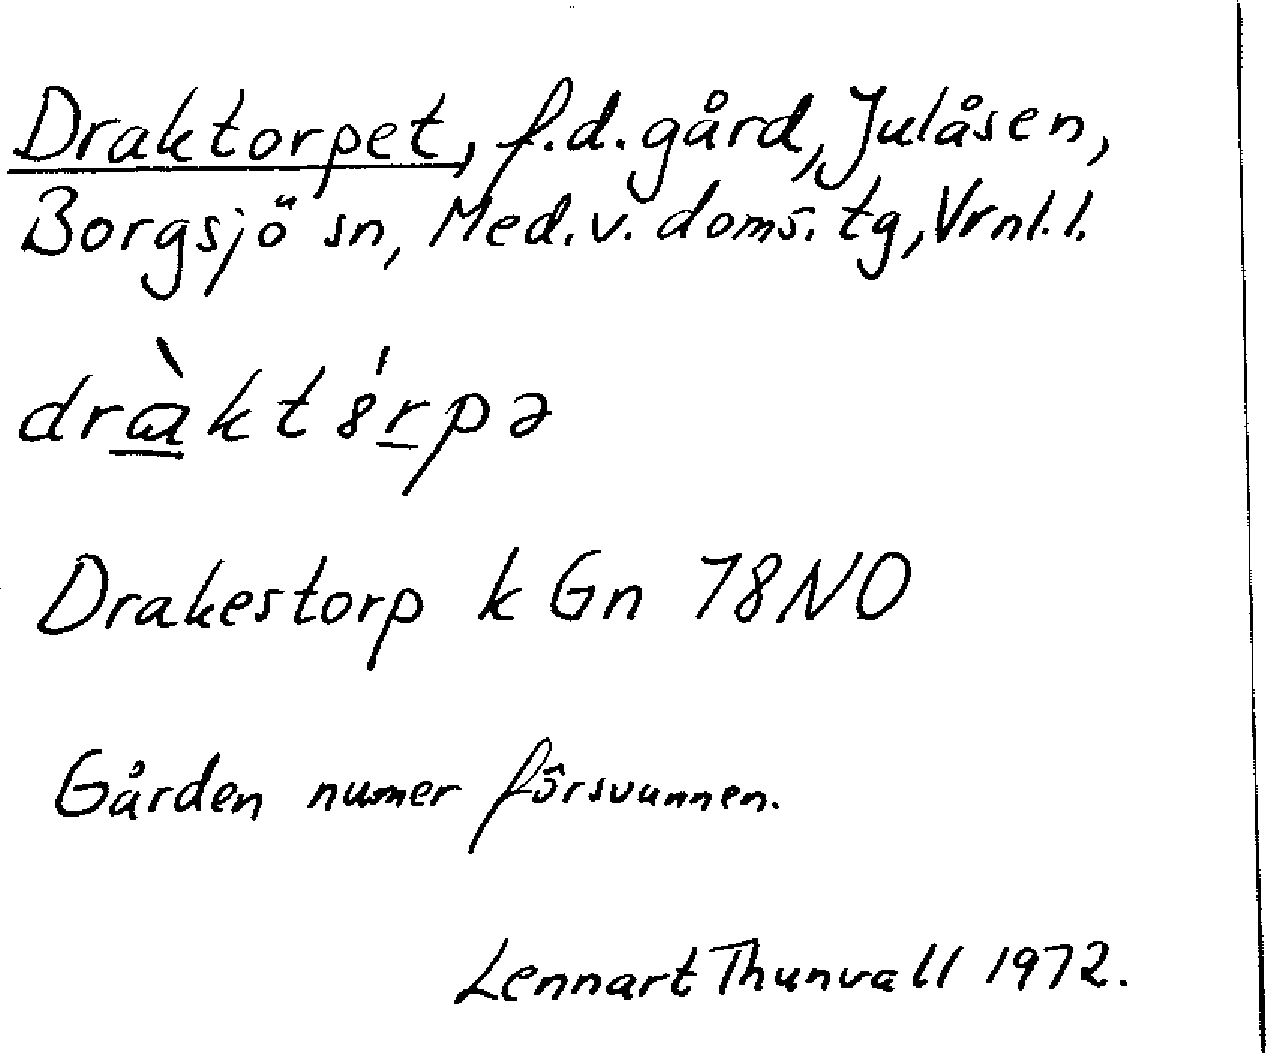 Draktorpet, f.d. gård, Julåsen,
Borgsjö sn, Med. v. doms. tg, Vrnl. l.
drɑ̀ktȣ́rpə
Drakestorp k Gn 78NO
Gården numer försvunnen.
Lennart Thunvall 1972.